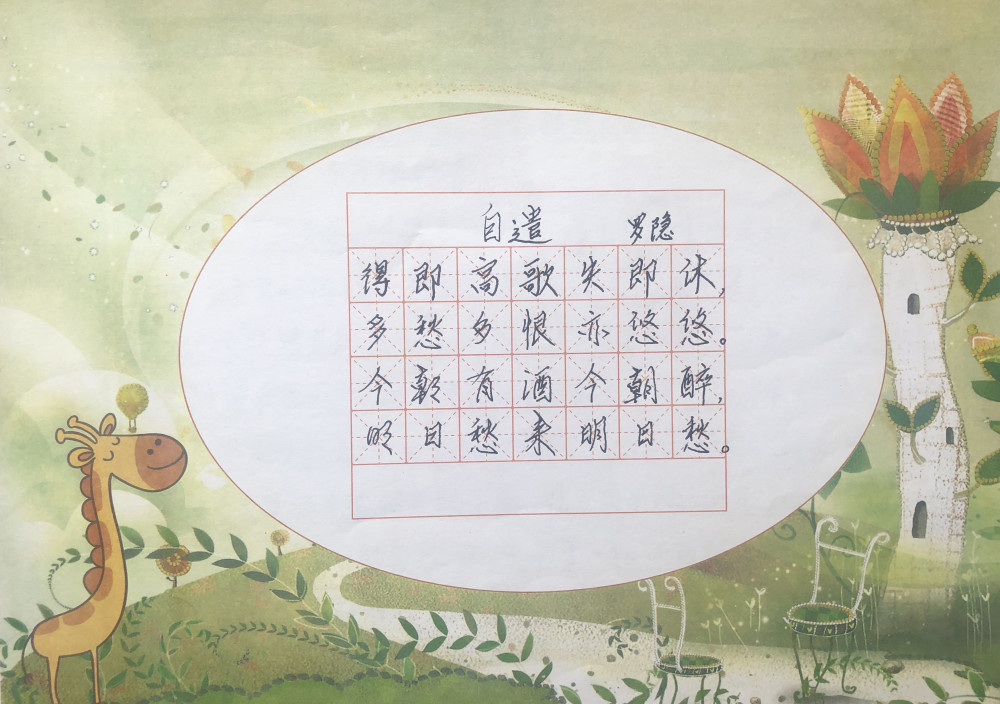 自遣 罗隐
得即高歌失即休，
多愁多恨亦悠悠。
今朝有酒今朝醉，
明日愁来明日愁。